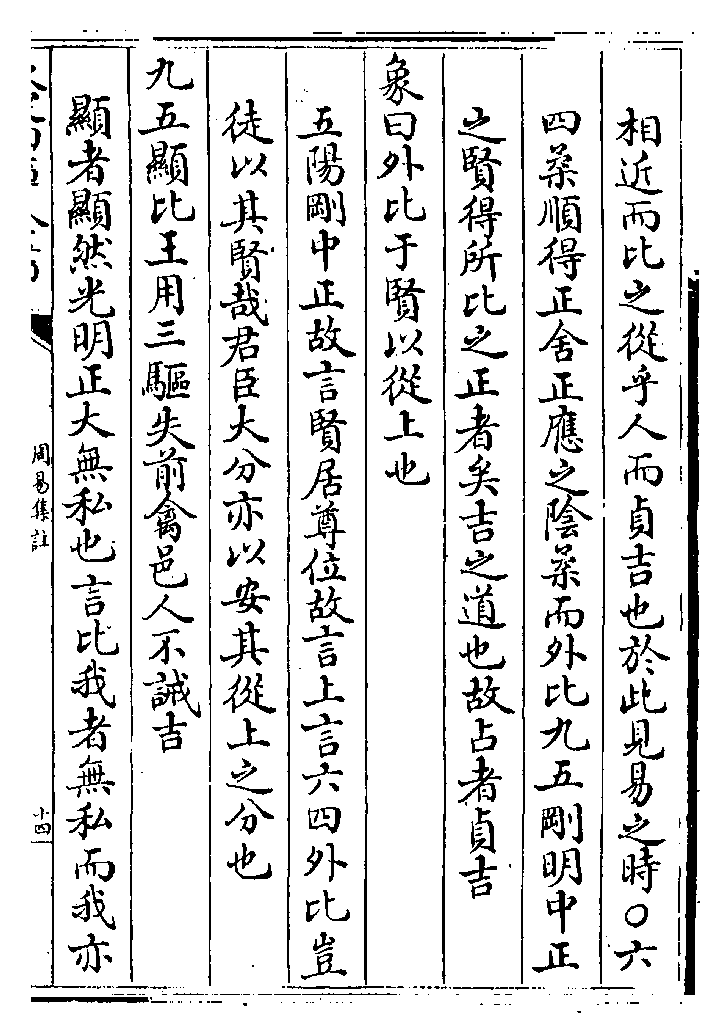 相近而比之從乎人而貞吉也於此見易之時○六
四柔順得正舍正應之陰柔而外比九五剛明中正
之賢得所比之正者矣吉之道也故占者貞吉
象曰外比于賢以從上也
五陽剛中正故言賢居尊位故言上言六四外比豈
徒以其賢哉君臣大分亦以安其從上之分也
九五顯比王用三驅失前禽邑人不誡吉
顯者顯然光明正大無私也言比我者無私而我亦
周易集註
十四